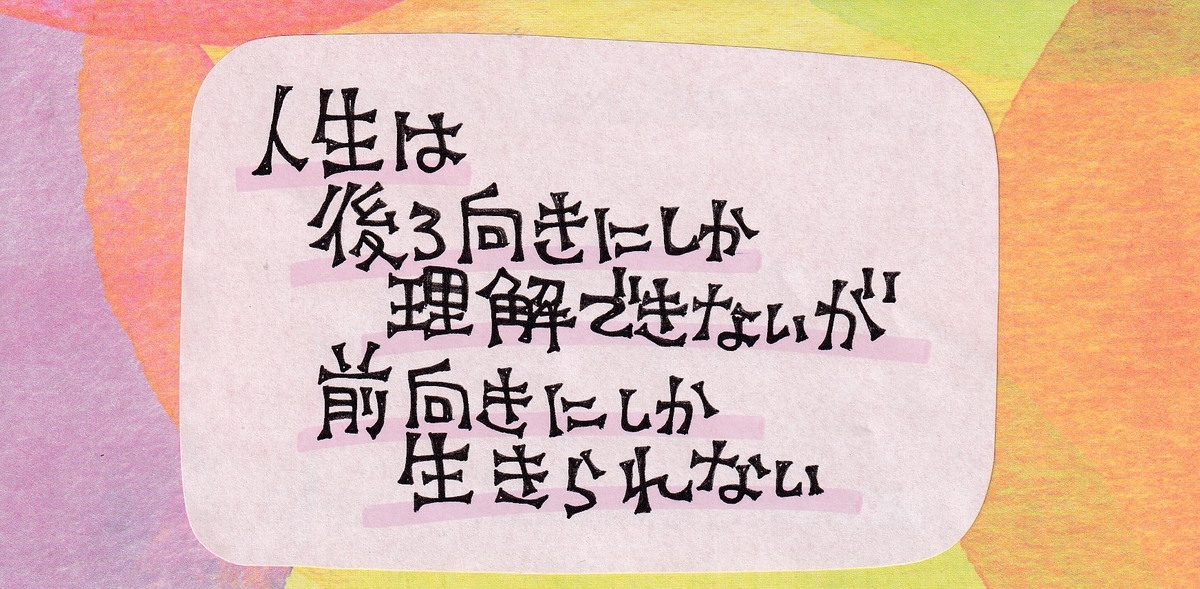 人生は
後ろ向きにしか
理解できないが
前向きにしか
生きられない